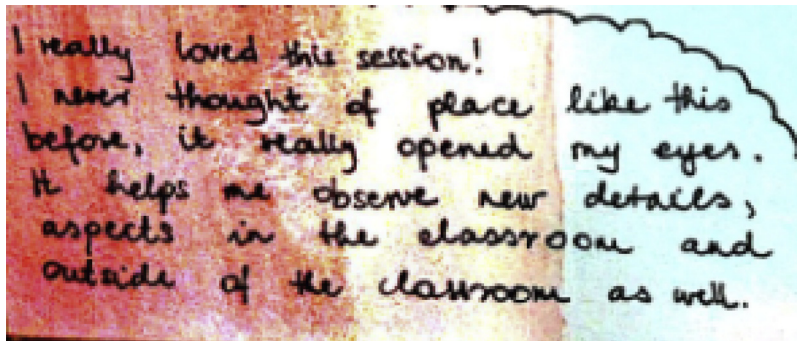 I really loved this session!
I never thought of place like this
before, it really opened my eyes.
It helps me observe new details,
aspects in the classroom and
outside of the classroom as well.